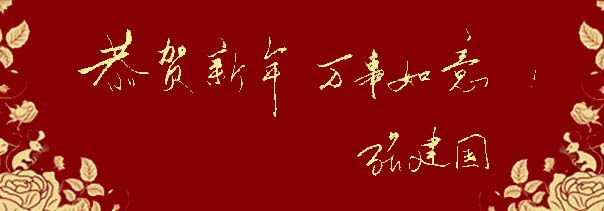 恭贺新年 万事如意！
张建国